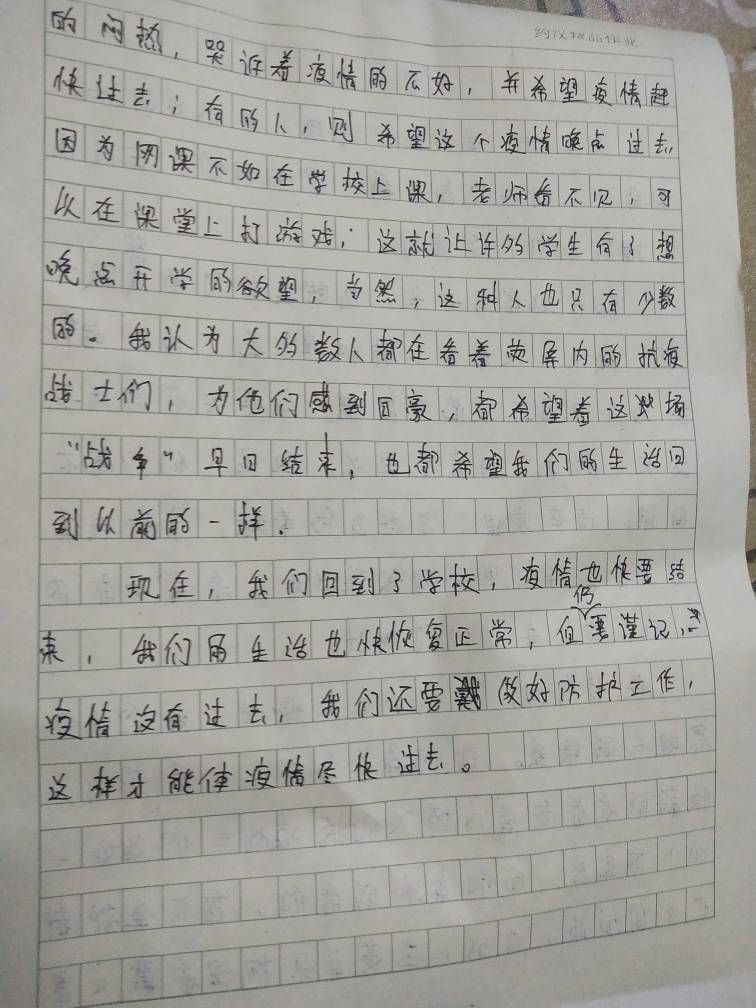 的闷热，哭诉着疫情的不好，并希望疫情赶
快过去；有的人，则希望这个疫情晚点过去，
因为网课不如在学校上课，老师看不见，可
以在课堂上打游戏；这就让许多学生有了想
晚点开学的欲望，当然，这种人也只有少数
的。我认为大多数人都在看着荧屏内的抗疫
战士们，为他们感到自豪，都希望着这场
“战争”早日结束，也都希望我们的生活回
到以前的一样。
现在，我们回到了学校，疫情也快要结
束，我们的生活也快恢复正常，但仍要谨记，
疫情没有过去，我们还要做好防护工作，
这样才能使疫情尽快过去。